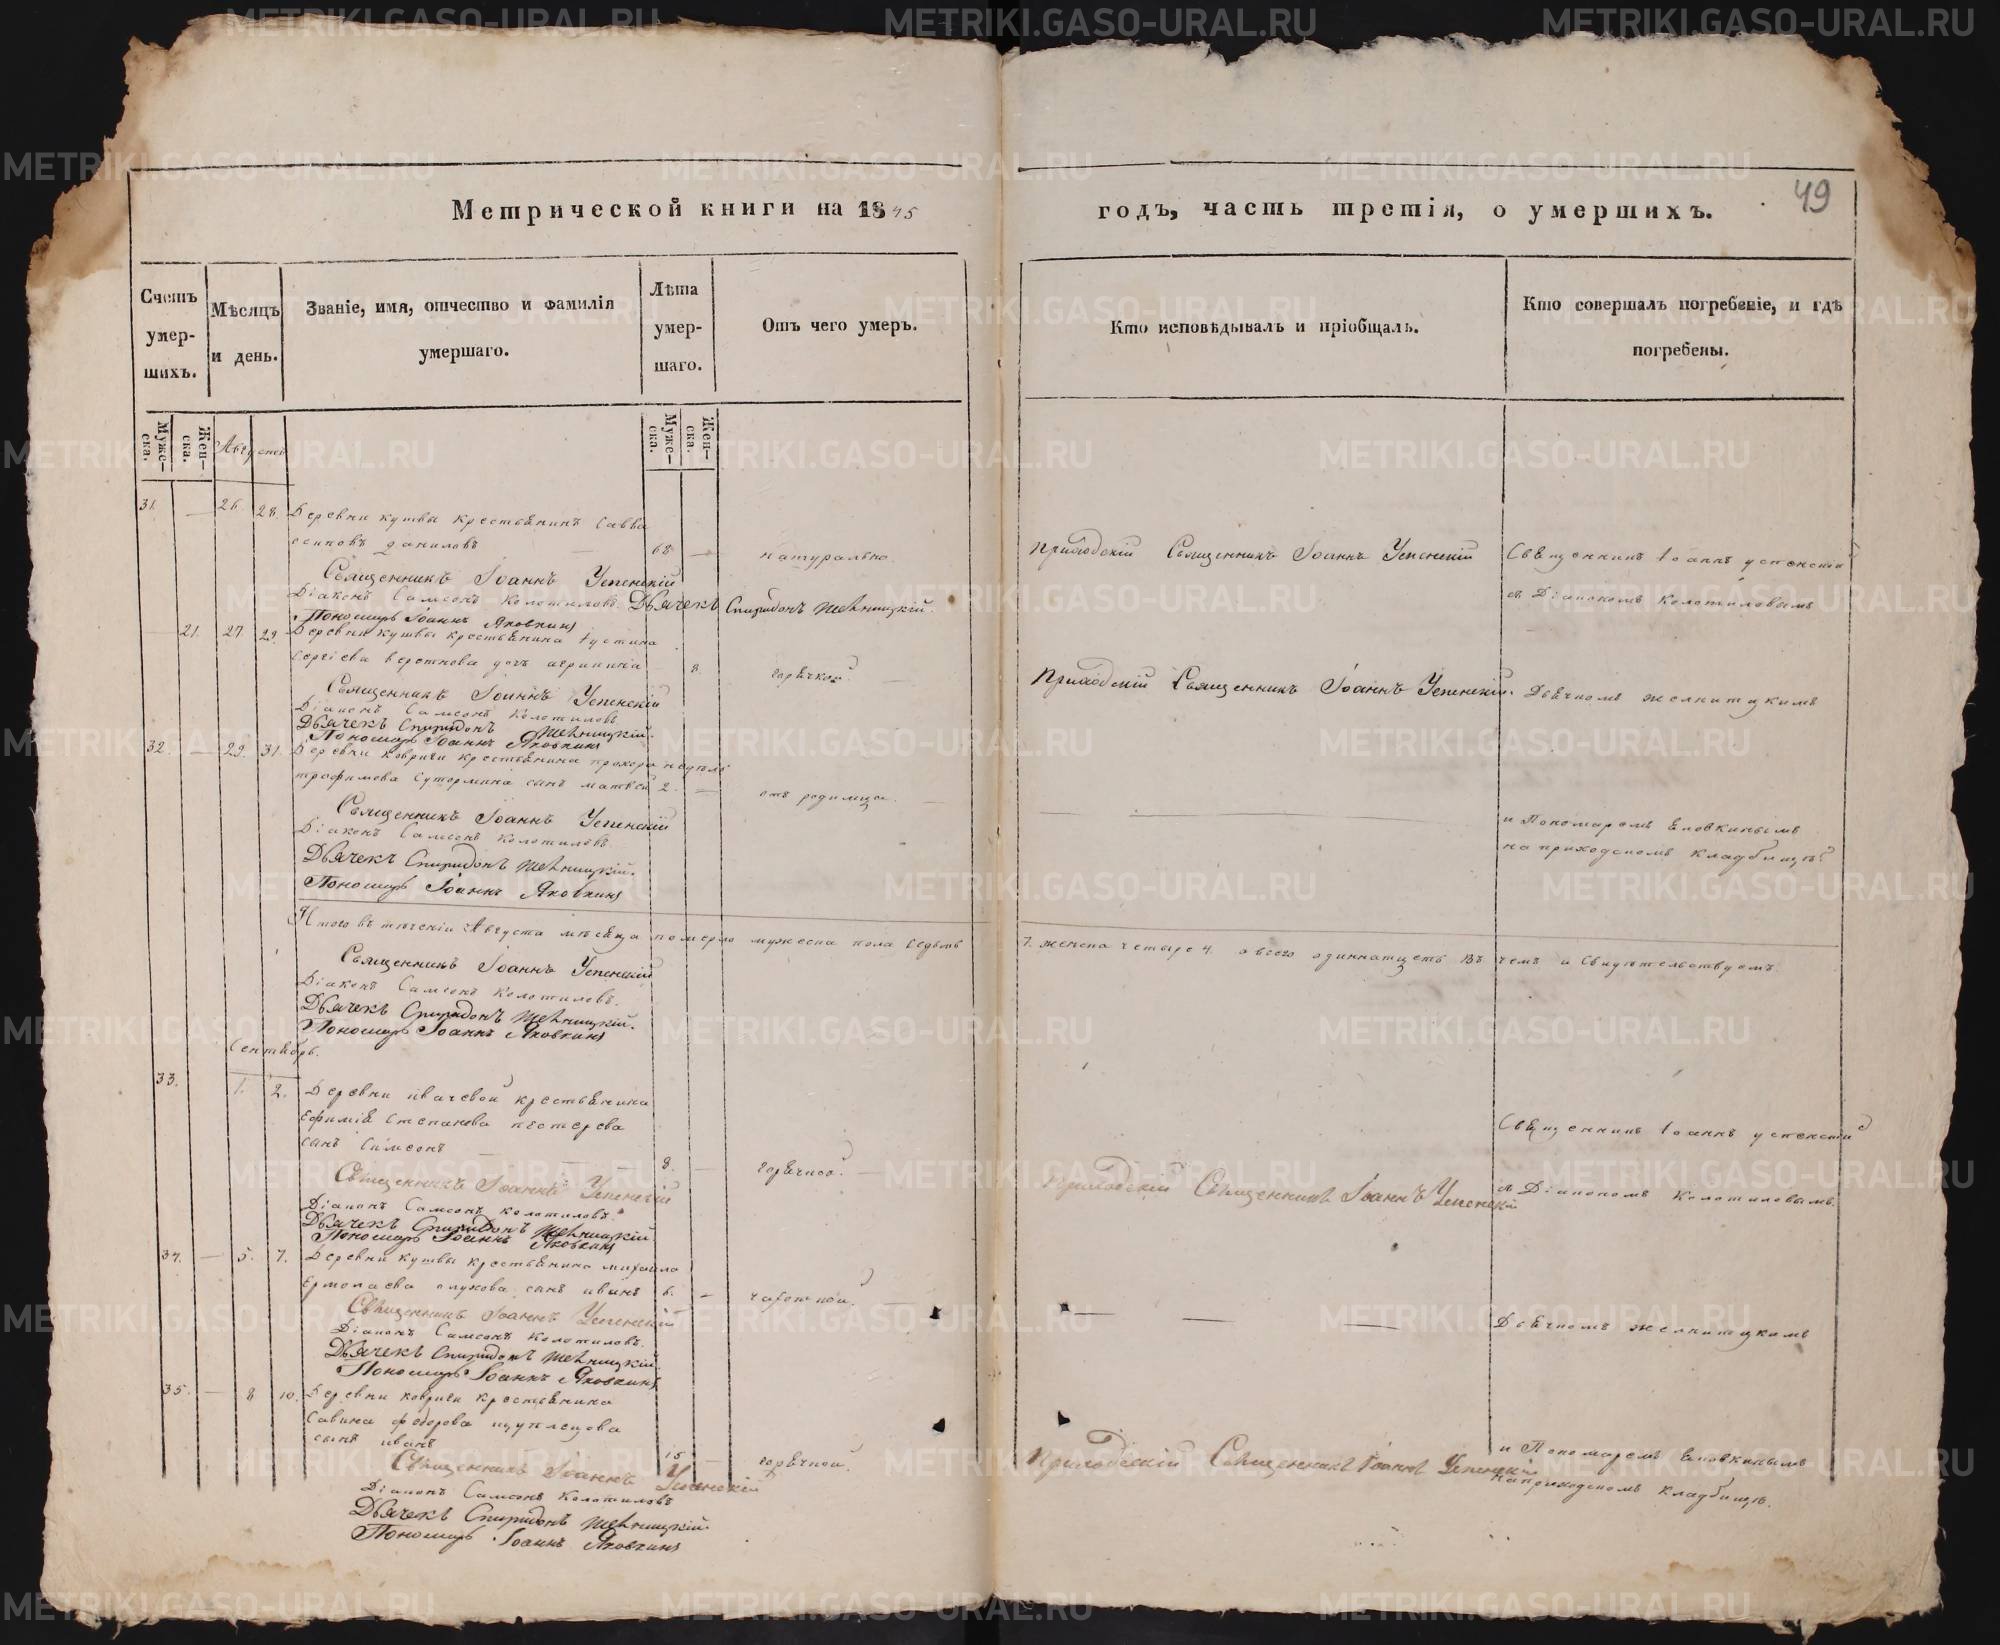 49
Метрической книги на 1845 годъ, часть третія, о умершихъ.
Счетъ умер-шихъ.
Мѣсяцъ и день.
Званіе, имя, отчество и фамилія умершаго.
Лѣта умер-шаго.
Отъ чего умеръ.
Кто исповѣдывалъ и пріобщалъ.
Кто совершалъ погребеніе, и гдѣ погребены.
Муже-ска.
Жен-ска.
Августъ
Муже-ска.
Жен-ска.
31. — 26. 28. Деревни кутвы крестьянинъ Савва
осиповъ даниловъ 68 — натурально.
Приходскій Священникъ Іоаннъ Успенскій
Священникъ Іоаннъ успенскій
Священникъ Іоаннъ Успенскій
Діаконъ Самсонъ Колотиловъ. Дьячекъ Спиридонъ
съ Діакономъ Колотиловымъ
Пономарь Іоаннъ Яковкинъ
— 21. 27 29. Деревни кутвы крестьянина
Сергіева дочь агрипина 8. горячкой.
Приходскій Священникъ Іоаннъ Успенскій.
Дьячкомъ
Священникъ Іоаннъ Успенскій
Діаконъ Самсонъ Колотиловъ
Дьячекъ Спиридонъ
Пономарь Іоаннъ Яковкинъ
32. — 29. 31. Деревни крестьянина прохора
трофимова сынъ матвей 2. — отъ родимца.
Священникъ Іоаннъ Успенскій
Діаконъ Самсонъ Колотиловъ
и Пономаремъ
на приходскомъ кладбищѣ
Дьячекъ Спиридонъ
Пономарь Іоаннъ Яковкинъ
Итого въ теченіи Августа мѣсяца померло мужеска пола седьмь 7. женска четыре 4. а всего одиннатцеть въ чемъ и свидѣтельствуемъ.
Священникъ Іоаннъ Успенскій
Діаконъ Самсонъ Колотиловъ.
Дьячекъ Спиридонъ
Пономарь Іоаннъ Яковкинъ
Сентябрь.
33. 1. 2. Деревни крестьянина
Степанова пестерева
сынъ Самсонъ 8. — горячкой.
Священникъ Іоаннъ успенскій
Приходскій Священникъ Іоаннъ Успенскій
съ Діакономъ Колотиловымъ.
Священникъ Іоаннъ Успенскій
Діаконъ Самсонъ колотиловъ.
Дьячекъ Спиридонъ
Пономарь Іоаннъ Яковкинъ
34. — 5. 7. Деревни кутвы крестьянина михайла
Ермолаева сынъ иванъ 6. —
Священникъ Іоаннъ Успенскій
Діаконъ Самсонъ Колотиловъ.
Дьячкомъ
Дьячекъ Спиридонъ
Пономарь Іоаннъ Яковкинъ
35. — 8 10. Деревни крестьянина
Савина федорова
сынъ иванъ 15 — горячкой.
Приходскій Священникъ Іоаннъ Успенскій
и Пономаремъ
на приходскомъ кладбищѣ.
Священникъ Іоаннъ Успенскій
Діаконъ Самсонъ Колотиловъ
Дьячекъ Спиридонъ
Пономарь Іоаннъ Яковкинъ
METRIKI.GASO-URAL.RU